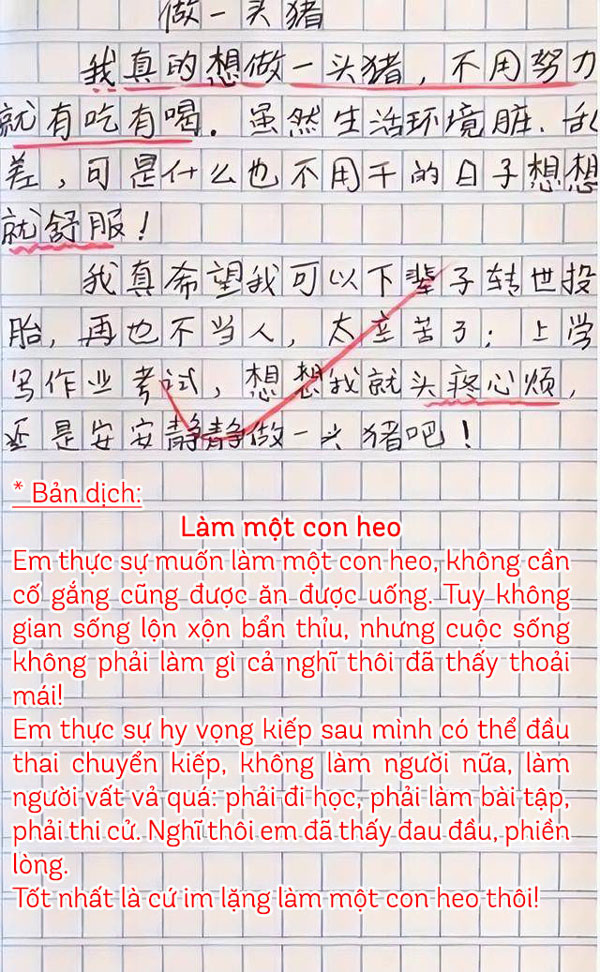 做一头猪
我真的想做一头猪，不用努力
就有吃有喝．虽然生活环境脏、乱
差，可是什么也不用干的日子想想
就舒服！
我真希望我可以下辈子转世投
胎，再也不当人，太辛苦了：上学
写作业考试，想想我就头疼心烦，
还是安安静静做一头猪吧！
* Bản dịch:
Làm một con heo
Em thực sự muốn làm một con heo, không cần
cố gắng cũng được ăn được uống. Tuy không
gian sống lộn xộn bẩn thỉu, nhưng cuộc sống
không phải làm gì cả nghĩ thôi đã thấy thoải
mái!
Em thực sự hy vọng kiếp sau mình có thể đầu
thai chuyển kiếp, không làm người nữa, làm
người vất vả quá: phải đi học, phải làm bài tập,
phải thi cử. Nghĩ thôi em đã thấy đau đầu, phiền
lòng.
Tốt nhất là cứ im lặng làm một con heo thôi!